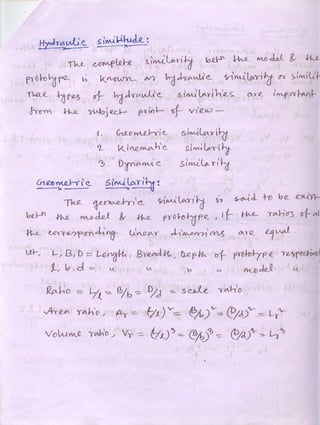 Hydraulic similitude:
The complete similarity betn the model & the
prototype is known as hydraulic similarity or similit
Three types of hydraulic similarities are important
from the subject point of view —
1. Geometric similarity
2 Kinematic similarity
3. Dynamic similarity
Geometric similarity:
The geometric similarity is said to be exist
betn the model & the prototype, if the ratios of al
the corresponding linear dimensions are equal.
Let, L, B, D = Length, Breadth, Depth of prototype respective
l, b, d = " " " " model "
Ratio = L/l = B/b = D/d = scale ratio.
Area ratio, Ar = (L/l)² = (B/b)² = (D/d)² = Lr²
Volume ratio, Vr = (L/l)³ = (B/b)³ = (D/d)³ = Lr³